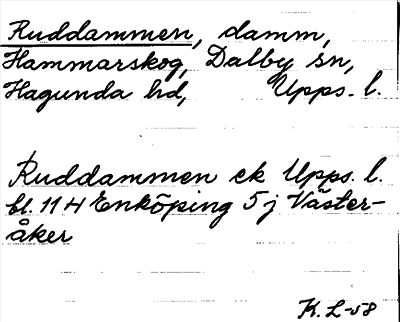 Ruddammen, damm,
Hammarskog, Dalby sn,
Hagunda hd, Upps. l.
Ruddammen ek Upps. l.
bl. 114 Enköping 5 j Väster-
åker
K. L-58